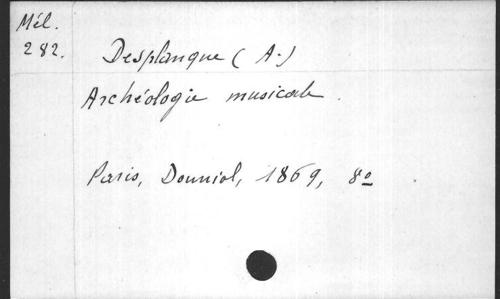 Mél.
282.
Desplanque (A.)
Archéologie musicale.
Paris, Douniol, 1869, 8º